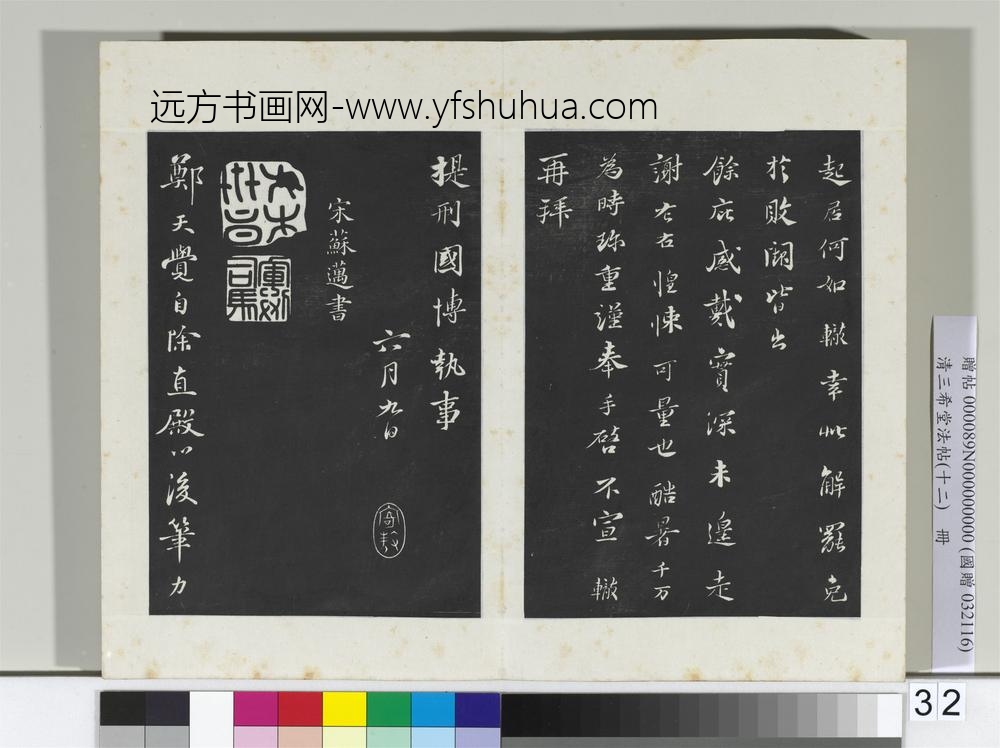 远方书画网-www.yfshuhua.com
起居何如轍幸此解罷克
於敗闕皆出
餘庇感戴實深未遑走
謝左右惶悚可量也酷暑千万
為時珎重謹奉手啓不宣 轍
再拜
提刑國博執事
六月九日
宋蘇邁書
鄭天覺自除直殿以後筆力
贈帖 000089N000000000 (國贈 032116)
清三希堂法帖(十二) 冊
32